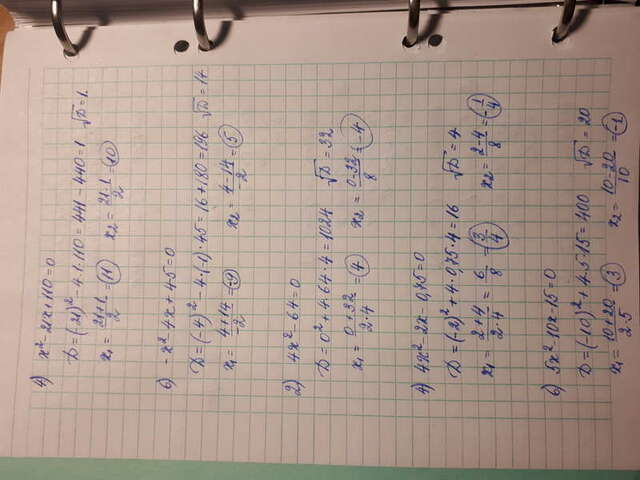 4) x² - 21x + 110 = 0
D = (-21)² - 4·1·110 = 441 - 440 = 1 √D = 1.
x₁ = (21+1)/2 = 11 x₂ = (21-1)/2 = 10
6) -x² - 4x + 45 = 0
D = (-4)² - 4·(-1)·45 = 16 + 180 = 196 √D = 14
x₁ = (4+14)/-2 = -9 x₂ = (4-14)/-2 = 5
2) 4x² - 64 = 0
D = 0² + 4·64·4 = 1024 √D = 32
x₁ = (0+32)/(2·4) = 4 x₂ = (0-32)/8 = -4
4) 4x² - 2x - 0,75 = 0
D = (-2)² + 4·0,75·4 = 16 √D = 4
x₁ = (2+4)/(2·4) = 6/8 = 3/4 x₂ = (2-4)/8 = -1/4
6) 5x² - 10x - 15 = 0
D = (-10)² + 4·5·15 = 400 √D = 20
x₁ = (10+20)/(2·5) = 3 x₂ = (10-20)/10 = -1